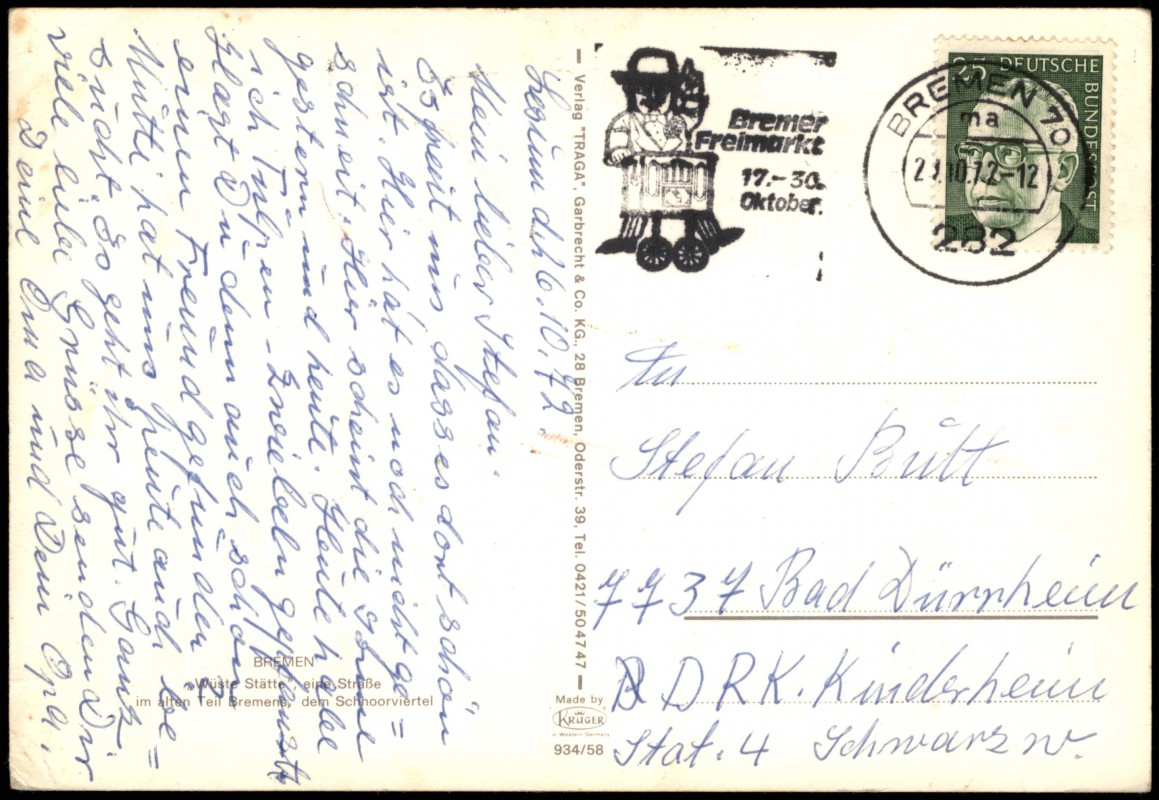 Lesum d. 26.10.72.
Mein lieber Stefan
Es freut uns dass es dort schön
ist. Hier hat es noch nicht ge=
schneit. Hier scheint die Sonne
gestern und heute. Heute habe
ich Tulpen-Zwiebeln gepflanzt.
Hast Du denn auch schon
einen Freund gefunden?
Mutti hat uns heute auch be=
sucht. Es geht ihr gut. Ganz
viele liebe Grüsse senden Dir
Deine Oma und Dein Opa.
BREMEN
„Wüste Stätte", eine Straße
im alten Teil Bremens, dem Schnoorviertel
— Verlag "TRAGA", Garbrecht & Co. KG., 28 Bremen, Oderstr. 39, Tel. 0421/504747 —
Made by
KRÜGER
in Western Germany
934/58
Bremer
Freimarkt
17.-30.
Oktober.
25 DEUTSCHE
BUNDESPOST
BREMEN 70
ma
10.72-12
282
An
Stefan Bütt
7737 Bad Dürrheim
DRK. Kinderheim
Stat. 4 Schwarzw.